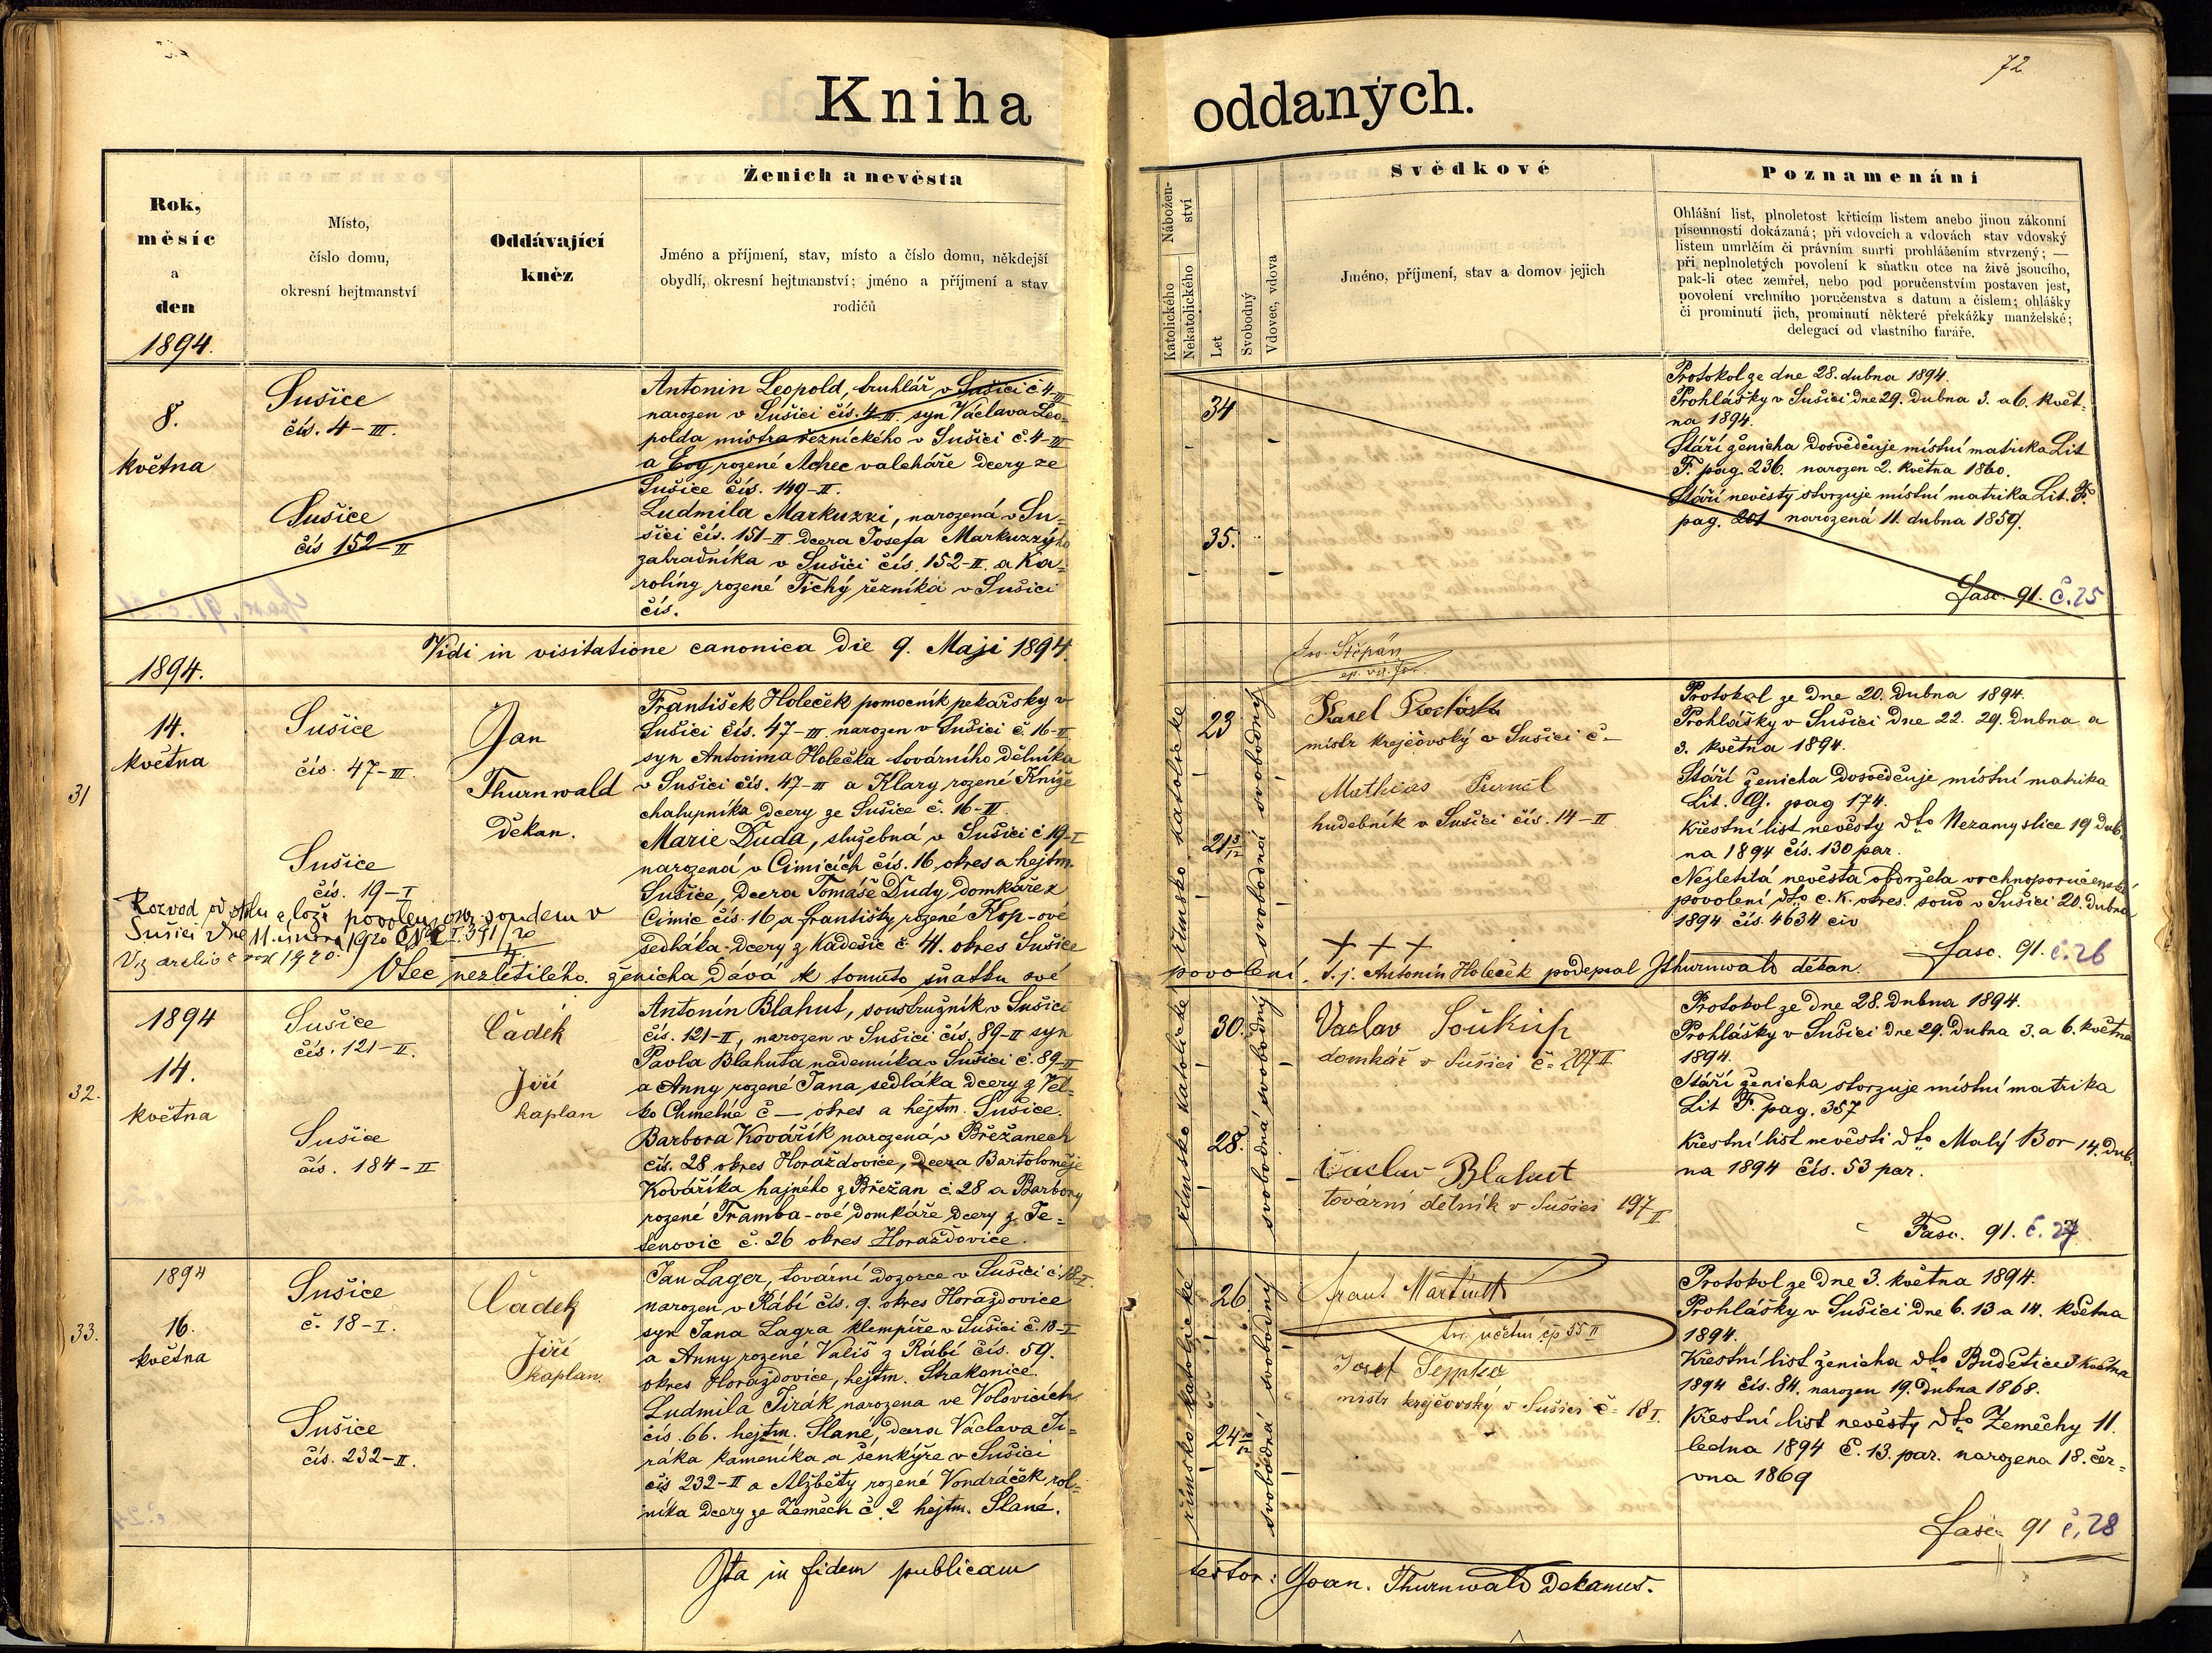 72
Kniha oddaných.
Rok,
měsíc
a
den
1894.
Místo,
číslo domu,
okresní hejtmanství
Oddávající
kněz
Ženich a nevěsta
Jméno a příjmení, stav, místo a číslo domu, někdejší
obydlí, okresní hejtmanství; jméno a příjmení a stav
rodičů
Nábožen-
ství
Katolického
Nekatolického
Let
Svobodný
Vdovec, vdova
Svědkové
Jméno, příjmení, stav a domov jejich
Poznamenání
Ohlášní list, plnoletost křticím listem anebo jinou zákonní
písemností dokázaná; při vdovcích a vdovách stav vdovský
listem umrlčím či právním smrti prohlášením stvrzený; —
při neplnoletých povolení k sňatku otce na živě jsoucího,
pak-li otec zemřel, nebo pod poručenstvím postaven jest,
povolení vrchního poručenstva s datum a číslem; ohlášky
či prominutí jich, prominutí některé překážky manželské;
delegací od vlastního faráře.
8.
května
Sušice
čís. 4-III.
Sušice
čís 152-II
Antonin Leopold, truhlář v Sušici č 4-III
narozen v Sušici čís. 4-III. syn Václava Leo-
polda mistra řeznického v Sušici č. 4-III
a Evy rozené Achec valcháře dcery ze
Sušice čís. 149-II.
Ludmila Markuzzi, narozená v Su-
šici čís. 151-II dcera Josefa Markuzzyho
zahradníka v Sušici čís. 152-II. a Ka-
roliny rozené Tichý řezníka v Sušici
čís.
34
35.
Protokol ze dne 28. dubna 1894.
Prohlášky v Sušici dne 29. dubna 3. a 6. květ-
na 1894.
Stáří ženicha dosvědčuje místní matrika Lit
F. pag. 236. narozen 2. května 1860.
Stáří nevěsty stvrzuje místní matrika Lit. F.
pag. 201 narozená 11. dubna 1859.
Fasc. 91. č. 25
1894.
Vidi in visitatione canonica die 9. Maji 1894.
Jos. Štěpán
31
14.
května
Sušice
čís. 47-III.
Sušice
čís. 19-I
Jan
Thurnwald
děkan.
František Holeček pomocník pekařsky v
Sušici čís. 47-III. narozen v Sušici č. 16-II
syn Antonína Holečka továrního dělníka
v Sušici čís. 47-III a Klary rozené Kníže
chalupníka dcery ze Sušice č. 16-II.
Marie Duda, služebná v Sušici č 19-I
narozená v Cimicích čís. 16 okres a hejtm.
Sušice, dcera Tomáše Dudy, domkáře z
Cimic čís. 16 a Františky, rozené Kop-ové
sedláka dcery z Kadešic č. 4. okres Sušice
Rozvod od stolu a lože povolen okr. soudem v
Sušici dne 11. února 1920
Viz archiv z rok 1920.
Otec nezletilého ženicha dává k tomuto sňatku své
povolení. t. j. Antonín Holeček podepsal JThurnwald děkan.
římsko katolické
23
21 5/12
svobodná svobodný
Karel
mistr krejčovský v Sušici č-
Mathias
hudebník v Sušici čís. 14-II
+ + +
Protokol ze dne 20. dubna 1894.
Prohlášky v Sušici dne 22. 29. dubna a
3. května 1894.
Stáří ženicha dosvědčuje místní matrika
Lit. G. pag 174.
Křestní list nevěsty dto Nezamyslice 19 dub-
na 1894 čís. 130 par.
Nezletilá nevěsta obdržela vrchnoporučenské
povolení dto c. k. okres. soud v Sušici 20. dubna
1894 čís. 4634 civ
Fasc. 91. č. 26
32.
1894
14.
května
Sušice
čís. 121-II.
Sušice
čís. 184-II
Čadek
Jiří
kaplan
Antonín Blahut, soustružník v Sušici
čís. 121-II, narozen v Sušici čís. 89-II syn
Pavla Blahuta nádeníka v Sušici č. 89-II
a Anny rozené Jana sedláka dcery z Vel-
ko Chmelné č — okres a hejtm. Sušice.
Barbora Kovářík narozená v Břežanech
čís. 28 okres Horažďovice, dcera Bartoloměje
Kováříka hajného z Břežan č. 28 a Barbory
rozené Tramba-ové domkáře dcery z Te-
šenovic č. 26 okres Horažďovice.
římsko katolické
30.
28.
svobodná svobodný
Vaclav Soukup
domkář v Sušici č- 207 II
Václav Blahut
tovární dělník v Sušici 197 II
Protokol ze dne 28. dubna 1894.
Prohlášky v Sušici dne 29. dubna 3. a 6. května
1894.
Stáří ženicha stvrzuje místní matrika
Lit F. pag. 357
Křestní list nevěsti dto Malý Bor 14. dub-
na 1894 čís. 53 par.
Fasc. 91. č. 27
33.
1894
16.
května
Sušice
č. 18-I.
Sušice
čís. 232-II.
Čadek
Jiří
kaplan.
Jan Lager, tovární dozorce v Sušici č 18-I
narozen v Rábí čís. 9. okres Horažďovice
syn Jana Lagra klempíře v Sušici č. 18-I
a Anny rozené Vališ z Rábí čís. 59.
okres Horažďovice, hejtm. Strakonice.
Ludmila Jirák narozena ve Volovicích
čís. 66. hejtm. Slané, dcera Václava Ji-
ráka kameníka a šenkýře v Sušici
čís 232-II a Alžběty rozené Vondráček rol-
níka dcery ze Zeměch č. 2 hejtm. Slané.
římsko katolické
26.
24 10/12
svobodná svobodný
Frant Martínek
účetní čp 55 II
Josef
mistr krejčovský v Sušici č- 18 I.
Protokol ze dne 3. května 1894.
Prohlášky v Sušici dne 6. 13 a 14. května
1894.
Křestní list ženicha dto Budětice 3 května
1894 čís. 84. narozen 19. dubna 1868.
Křestní list nevěsty dto Zeměchy 11.
ledna 1894 č. 13. par. narozena 18. čer-
vna 1869
Fasc. 91 č. 28
Ita in fidem publicam
testor: Joan. Thurnwald Dekanus.